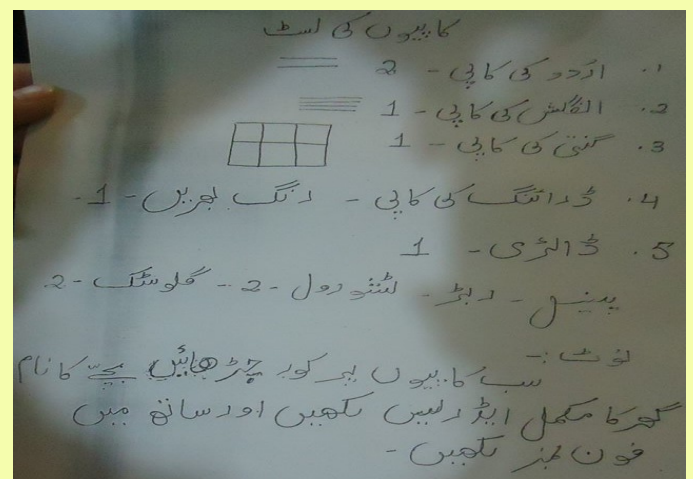 کاپیوں کی لسٹ
1. اردو کی کاپی - 2
2. انگلش کی کاپی - 1
3. گنتی کی کاپی - 1
4. ڈرائنگ کی کاپی - رنگ بھریں - 1 -
5. ڈائری - 1
پینسل - ربڑ - ٹشو رول - 2 - گلوسٹک - 2
نوٹ :-
سب کاپیوں پر کور چڑھائیں بچے کا نام
گھر کا مکمل ایڈریس لکھیں اور ساتھ میں
فون نمبر لکھیں -